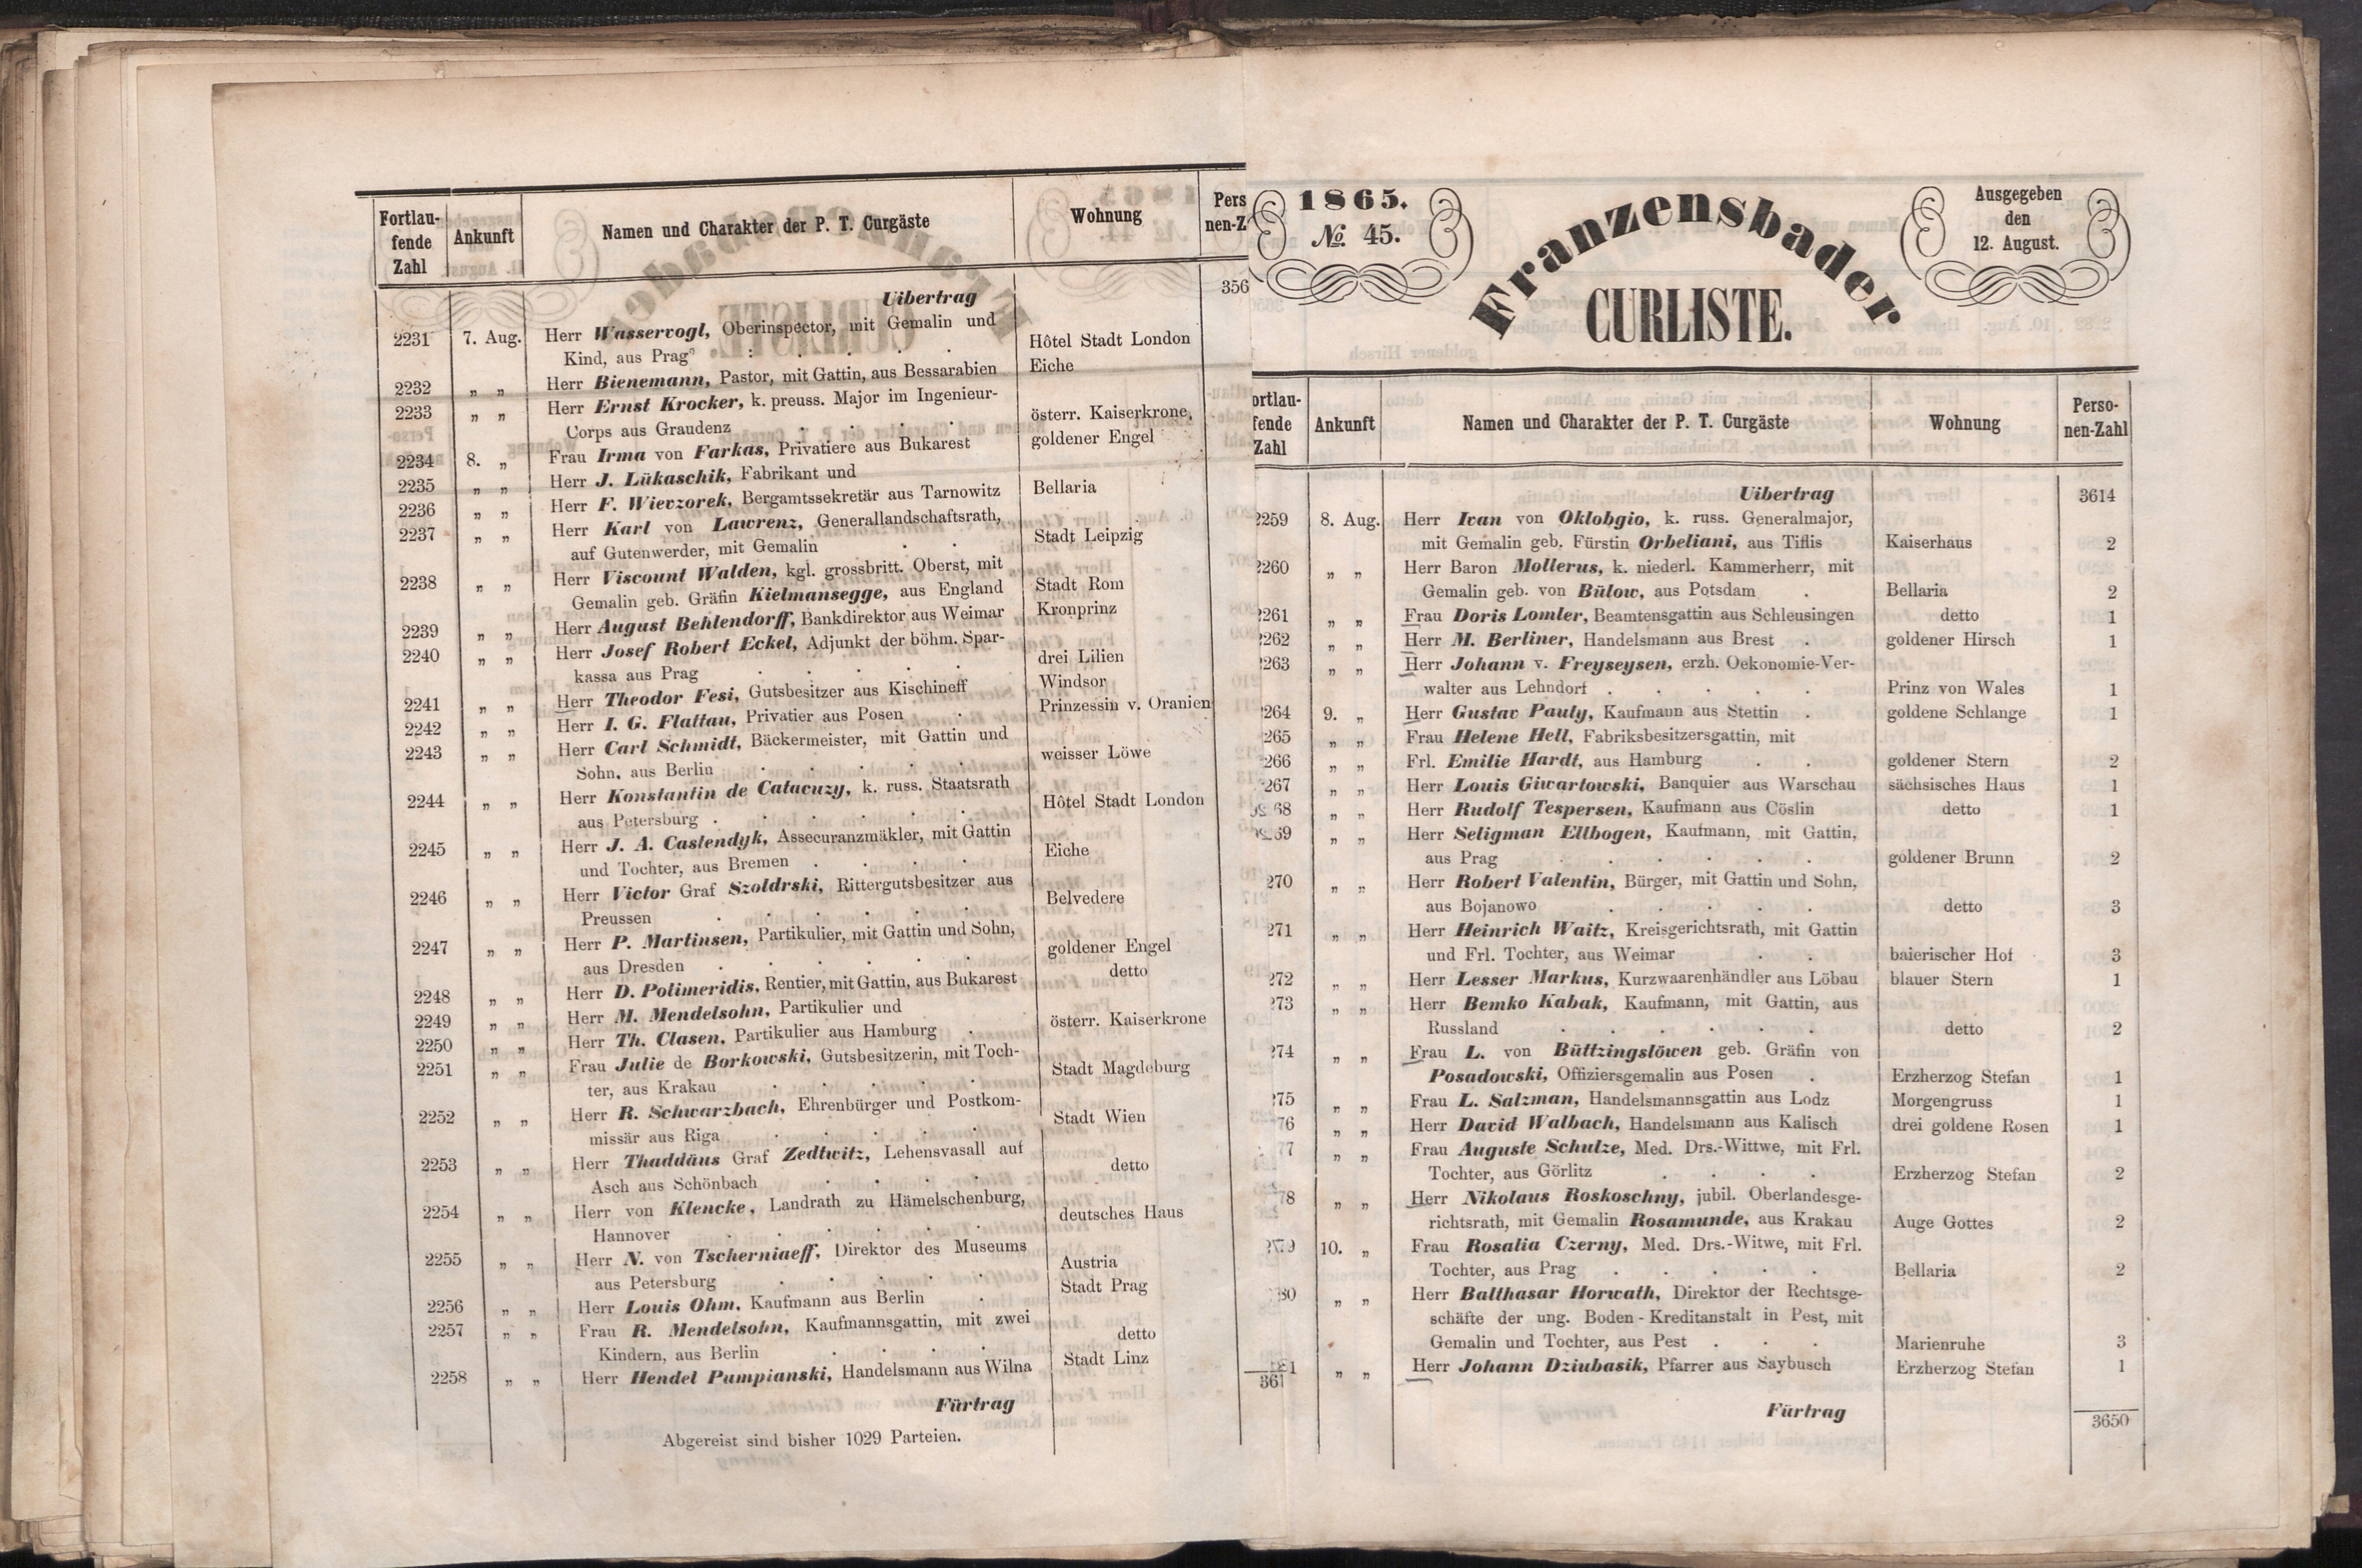 Fortlau-
fende
Zahl
Ankunft
Namen und Charakter der P. T. Curgäste
Wohnung
Pers
nen-Z
Uibertrag 356
2231 7. Aug. Herr Wasservogl, Oberinspector, mit Gemalin und
Kind, aus Prag . . . . . Hôtel Stadt London
2232 „ „ Herr Bienemann, Pastor, mit Gattin, aus Bessarabien Eiche
2233 „ „ Herr Ernst Krocker, k. preuss. Major im Ingenieur-
Corps aus Graudenz . . . . österr. Kaiserkrone,
2234 8. „ Frau Irma von Farkas, Privatiere aus Bukarest goldener Engel
2235 „ „ Herr J. Lükaschik, Fabrikant und
2236 „ „ Herr F. Wievzorek, Bergamtssekretär aus Tarnowitz Bellaria
2237 „ „ Herr Karl von Lawrenz, Generallandschaftsrath,
auf Gutenwerder, mit Gemalin . . Stadt Leipzig
2238 „ „ Herr Viscount Walden, kgl. grossbritt. Oberst, mit
Gemalin geb. Gräfin Kielmansegge, aus England Stadt Rom
2239 „ „ Herr August Behlendorff, Bankdirektor aus Weimar Kronprinz
2240 „ „ Herr Josef Robert Eckel, Adjunkt der böhm. Spar-
kassa aus Prag . . . . . drei Lilien
2241 „ „ Herr Theodor Fesi, Gutsbesitzer aus Kischineff Windsor
2242 „ „ Herr I. G. Flattau, Privatier aus Posen . Prinzessin v. Oranien
2243 „ „ Herr Carl Schmidt, Bäckermeister, mit Gattin und
Sohn, aus Berlin . . . . . weisser Löwe
2244 „ „ Herr Konstantin de Catacuzy, k. russ. Staatsrath
aus Petersburg . . . . . . Hôtel Stadt London
2245 „ „ Herr J. A. Castendyk, Assecuranzmäkler, mit Gattin
und Tochter, aus Bremen . . . . Eiche
2246 „ „ Herr Victor Graf Szoldrski, Rittergutsbesitzer aus
Preussen . . . . . . Belvedere
2247 „ „ Herr P. Martinsen, Partikulier, mit Gattin und Sohn,
aus Dresden . . . . . . goldener Engel
2248 „ „ Herr D. Polimeridis, Rentier, mit Gattin, aus Bukarest detto
2249 „ „ Herr M. Mendelsohn, Partikulier und
2250 „ „ Herr Th. Clasen, Partikulier aus Hamburg . österr. Kaiserkrone
2251 „ „ Frau Julie de Borkowski, Gutsbesitzerin, mit Toch-
ter, aus Krakau . . . . . Stadt Magdeburg
2252 „ „ Herr R. Schwarzbach, Ehrenbürger und Postkom-
missär aus Riga . . . . . Stadt Wien
2253 „ „ Herr Thaddäus Graf Zedtwitz, Lehensvasall auf
Asch aus Schönbach . . . . detto
2254 „ „ Herr von Klencke, Landrath zu Hämelschenburg,
Hannover . . . . . . deutsches Haus
2255 „ „ Herr N. von Tscherniaeff, Direktor des Museums
aus Petersburg . . . . . Austria
2256 „ „ Herr Louis Ohm, Kaufmann aus Berlin . Stadt Prag
2257 „ „ Frau R. Mendelsohn, Kaufmannsgattin, mit zwei
Kindern, aus Berlin . . . . detto
2258 „ „ Herr Hendel Pumpianski, Handelsmann aus Wilna Stadt Linz
Fürtrag 361
Abgereist sind bisher 1029 Parteien.
1865.
№ 45.
Franzensbader
CURLISTE.
Ausgegeben
den
12. August.
ortlau-
fende
Zahl
Ankunft
Namen und Charakter der P. T. Curgäste
Wohnung
Perso-
nen-Zahl
Uibertrag 3614
2259 8. Aug. Herr Ivan von Oklobgio, k. russ. Generalmajor,
mit Gemalin geb. Fürstin Orbeliani, aus Tiflis Kaiserhaus 2
2260 „ „ Herr Baron Mollerus, k. niederl. Kammerherr, mit
Gemalin geb. von Bülow, aus Potsdam . Bellaria 2
2261 „ „ Frau Doris Lomler, Beamtensgattin aus Schleusingen detto 1
2262 „ „ Herr M. Berliner, Handelsmann aus Brest . goldener Hirsch 1
2263 „ „ Herr Johann v. Freyseysen, erzh. Oekonomie-Ver-
walter aus Lehndorf . . . . . Prinz von Wales 1
264 9. „ Herr Gustav Pauly, Kaufmann aus Stettin . goldene Schlange 1
265 „ „ Frau Helene Hell, Fabriksbesitzersgattin, mit
266 „ „ Frl. Emilie Hardt, aus Hamburg . . goldener Stern 2
267 „ „ Herr Louis Giwartowski, Banquier aus Warschau sächsisches Haus 1
68 „ „ Herr Rudolf Tespersen, Kaufmann aus Cöslin detto 1
69 „ „ Herr Seligman Ellbogen, Kaufmann, mit Gattin,
aus Prag . . . . . . goldener Brunn 2
270 „ „ Herr Robert Valentin, Bürger, mit Gattin und Sohn,
aus Bojanowo . . . . . detto 3
271 „ „ Herr Heinrich Waitz, Kreisgerichtsrath, mit Gattin
und Frl. Tochter, aus Weimar . . baierischer Hof 3
272 „ „ Herr Lesser Markus, Kurzwaarenhändler aus Löbau blauer Stern 1
273 „ „ Herr Bemko Kabak, Kaufmann, mit Gattin, aus
Russland . . . . . . detto 2
274 „ „ Frau L. von Büttzingslöwen geb. Gräfin von
Posadowski, Offiziersgemalin aus Posen . Erzherzog Stefan 1
275 „ „ Frau L. Salzman, Handelsmannsgattin aus Lodz Morgengruss 1
76 „ „ Herr David Walbach, Handelsmann aus Kalisch drei goldene Rosen 1
77 „ „ Frau Auguste Schulze, Med. Drs.-Wittwe, mit Frl.
Tochter, aus Görlitz . . . . Erzherzog Stefan 2
78 „ „ Herr Nikolaus Roskoschny, jubil. Oberlandesge-
richtsrath, mit Gemalin Rosamunde, aus Krakau Auge Gottes 2
2279 10. „ Frau Rosalia Czerny, Med. Drs.-Witwe, mit Frl.
Tochter, aus Prag . . . . . Bellaria 2
80 „ „ Herr Balthasar Horwath, Direktor der Rechtsge-
schäfte der ung. Boden-Kreditanstalt in Pest, mit
Gemalin und Tochter, aus Pest . . . Marienruhe 3
281 „ „ Herr Johann Dziubasik, Pfarrer aus Saybusch Erzherzog Stefan 1
Fürtrag 3650